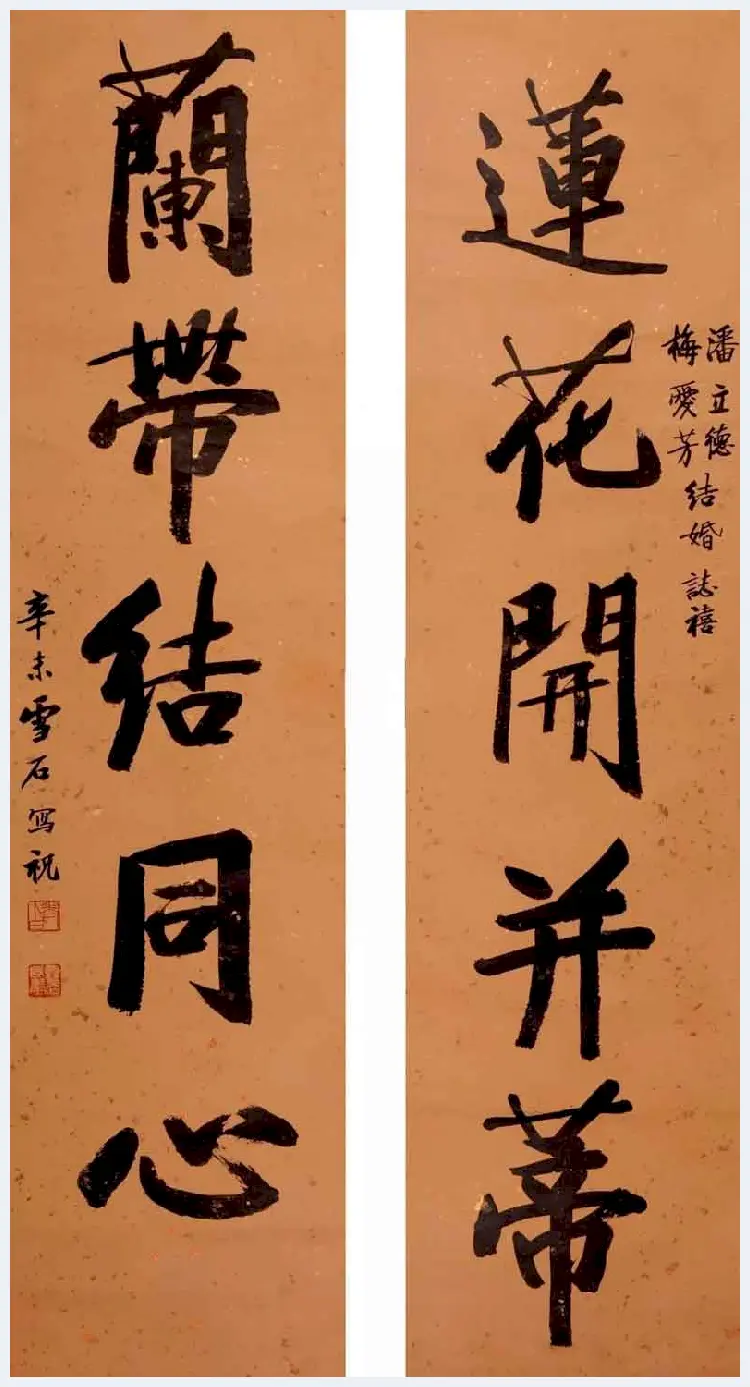 潘立德
梅愛芳結婚誌禧
蓮花開并蒂
蘭帶結同心
辛未雪石寫祝